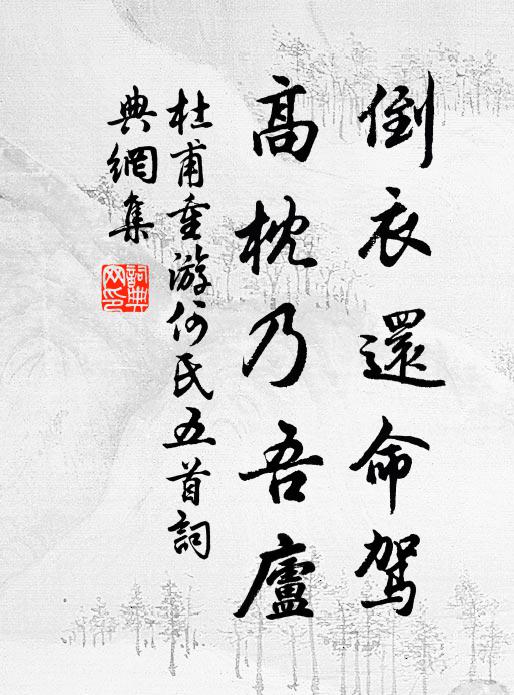 倒衣還命駕
高枕乃吾廬
杜甫重游何氏五首詞
典網集
詞典網印